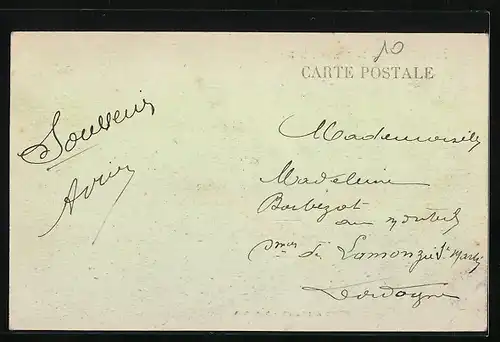 10
CARTE POSTALE
Souvenir
Mademoiselle
Madeleine
Barbezat
au
Lamonzie St Martin
Dordogne